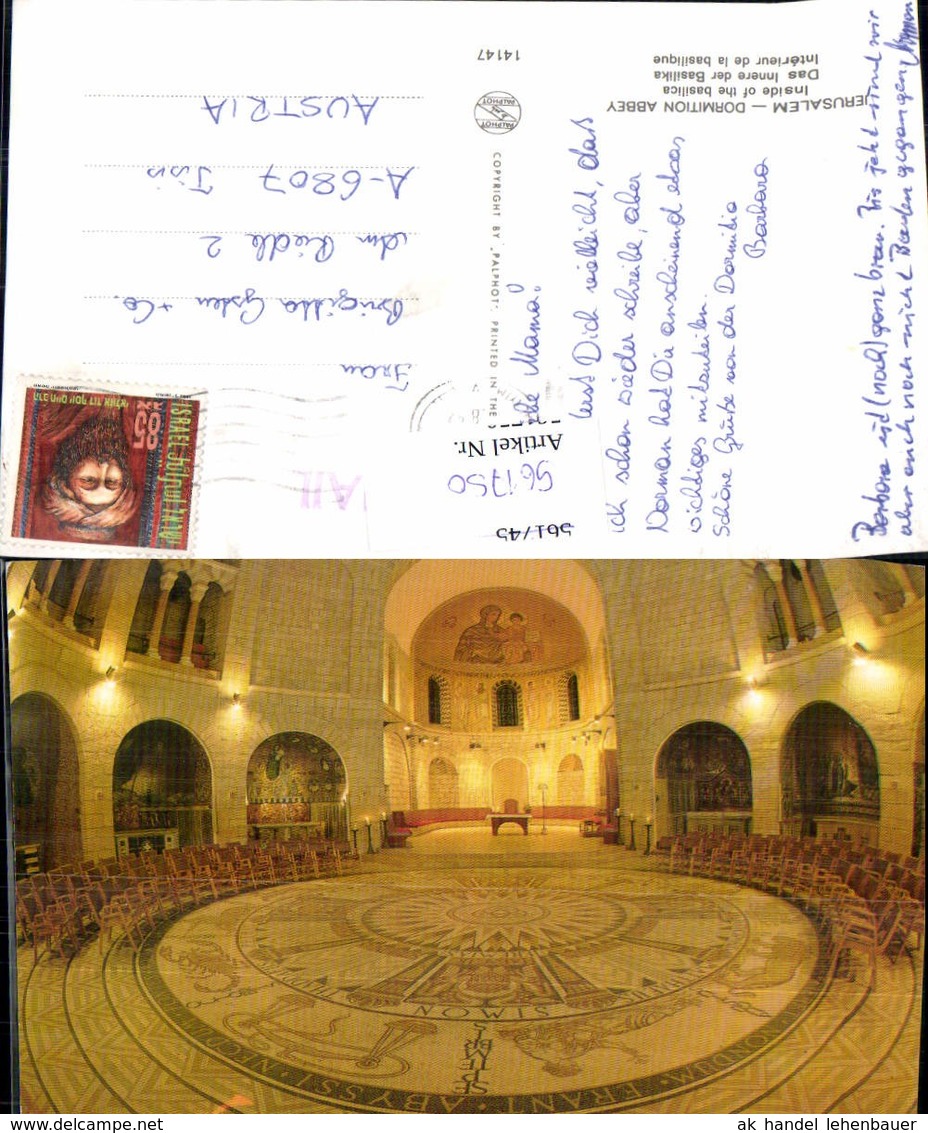 JERUSALEM — DORMITION ABBEY
Inside of the basilica
Das Innere der Basilika
Intérieur de la basilique
14147
PALPHOT
PALPHOT
COPYRIGHT BY "PALPHOT" PRINTED IN THE
Mama!
Dich vielleicht, daß
ich schon wieder schreibe, aber
Norman hat Dir anscheinend etwas
wichtiges mitzuteilen.
Schöne Grüße von der Dormitio
Barbara
Barbara ist (noch) ganz brav. Bis jetzt sind wir
aber auch noch nicht Baden gegangen
Frau
Brigitte + Co.
Am Riedle 2
A-6807 Tisis
AUSTRIA
ISRAEL
85
Artikel Nr.
561750
561745
SIMON
ERANT ABYSSI
ak handel lehenbauer